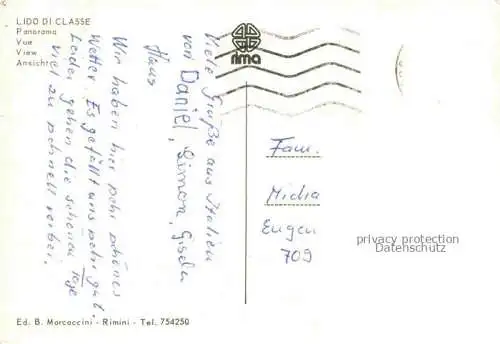 LIDO DI CLASSE
Panorama
Vue
View
Ansicht
rima
Wir haben hier sehr schönes
Wetter. Es gefällt uns sehr gut.
Leider gehen die schönen Tage
viel zu schnell vorbei.
Viele Grüße aus Italien
von Daniel, Simona, Gisela
Klaus
Fam.
Micha
Eugen
709
privacy protection
Datenschutz
Ed. B. Marcaccini - Rimini - Tel. 754250